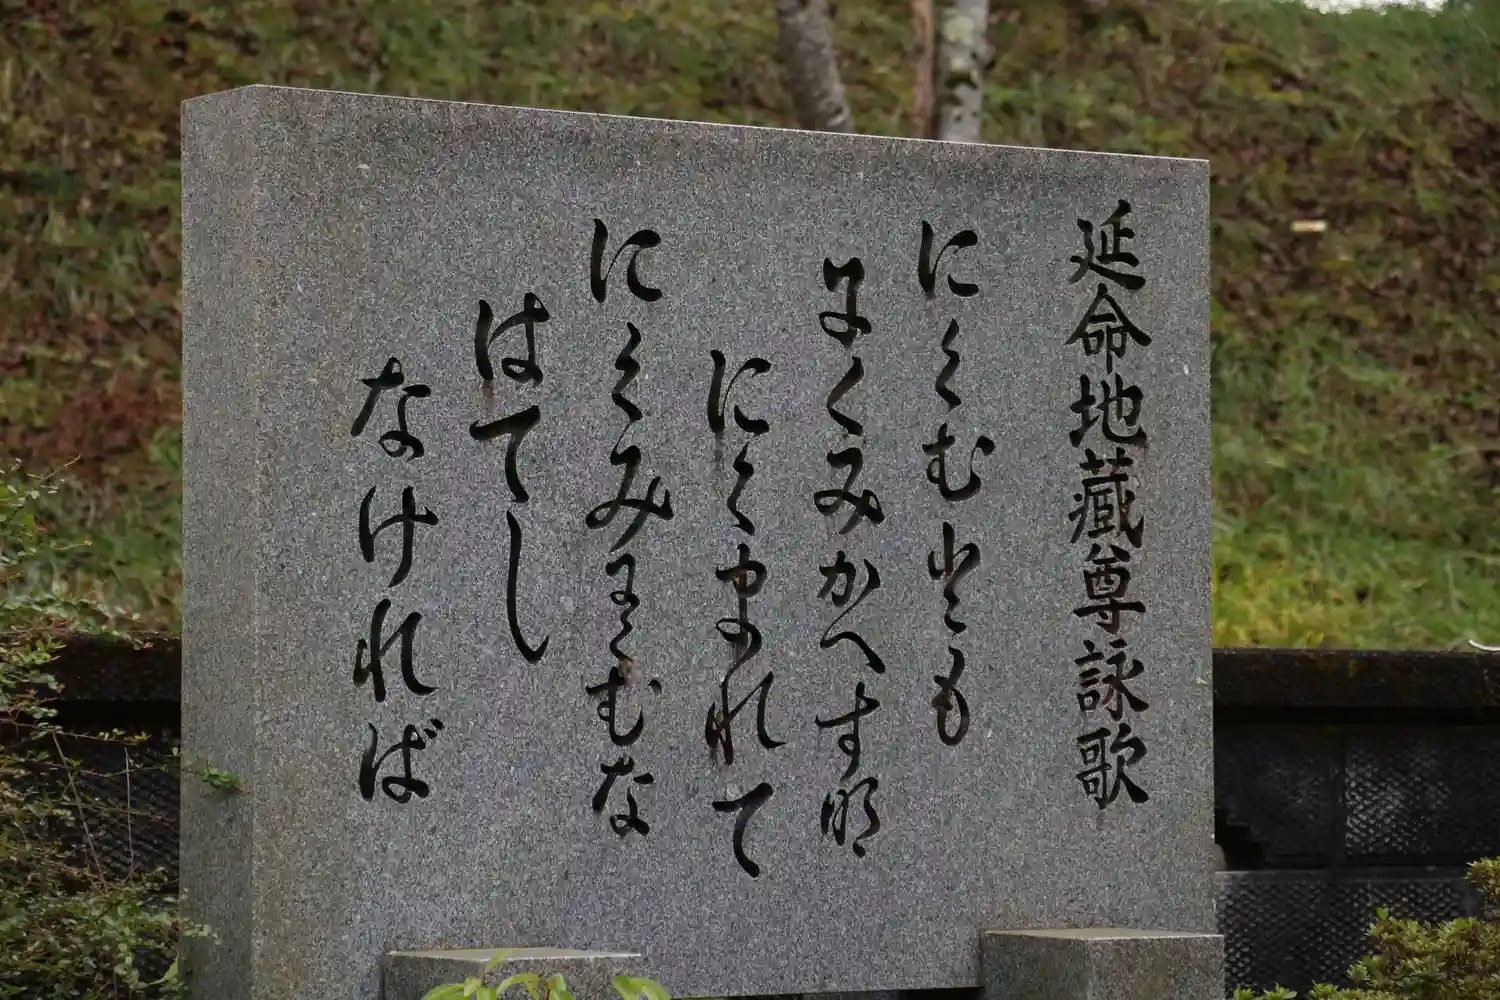 延命地蔵尊詠歌
にくむとも
にくみかへすな
にくまれて
にくみにくむな
はてし
なければ